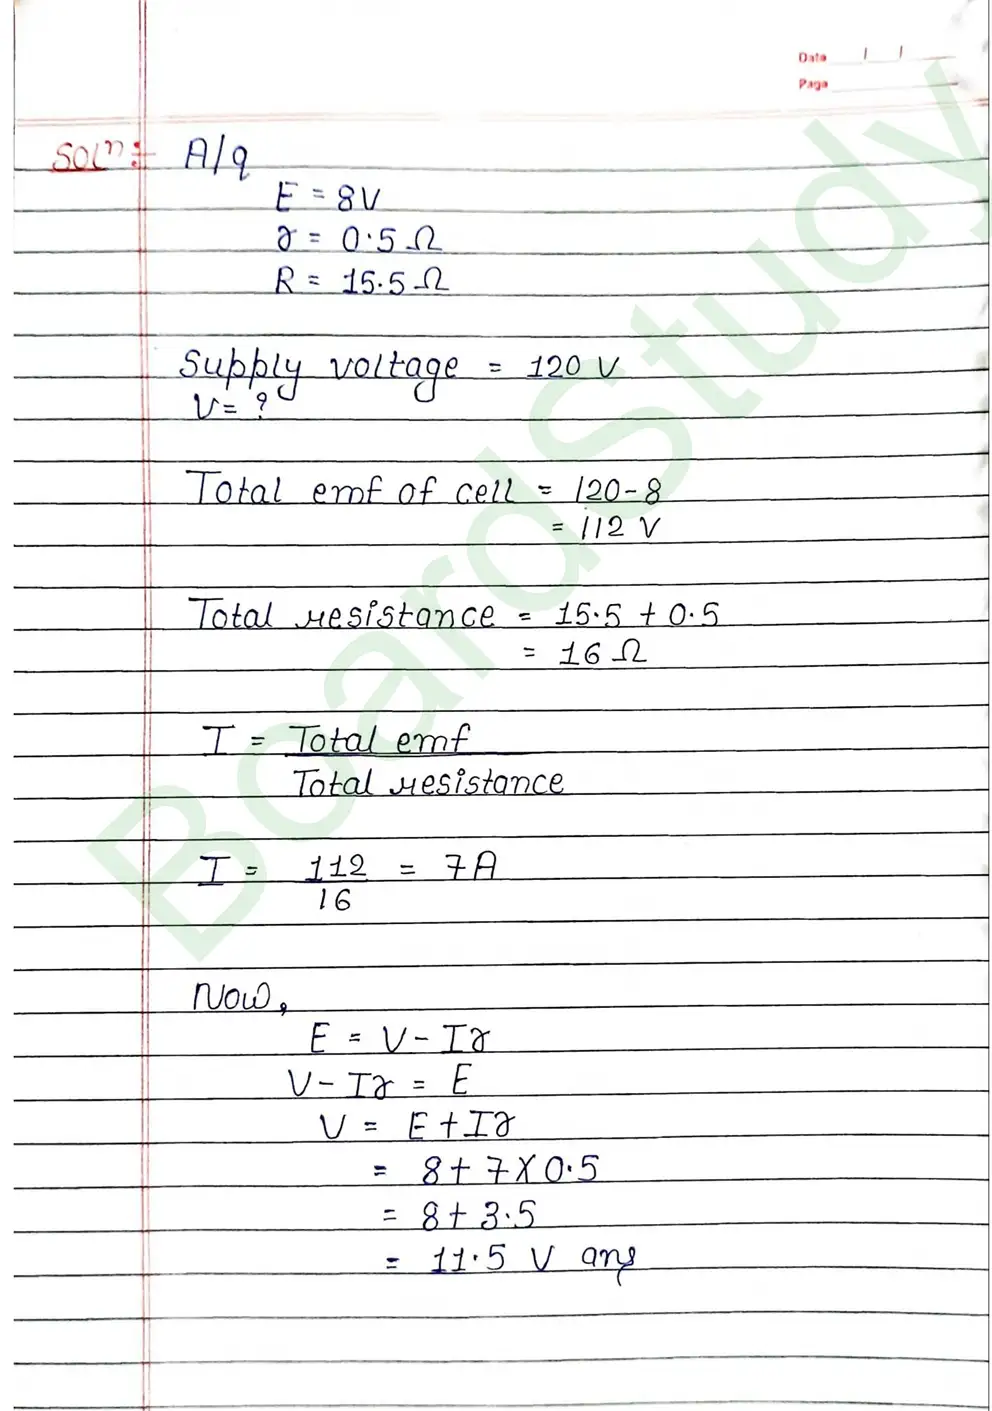 Date
Page
Soln :- A/q
E = 8V
r = 0.5 Ω
R = 15.5 Ω
Supply voltage = 120 V
V = ?
Total emf of cell = 120-8
= 112 V
Total resistance = 15.5 + 0.5
= 16 Ω
I = Total emf
Total resistance
I = 112 = 7A
16
Now,
E = V - Ir
V - Ir = E
V = E + Ir
= 8 + 7 X 0.5
= 8 + 3.5
= 11.5 V ans
BoardStudy